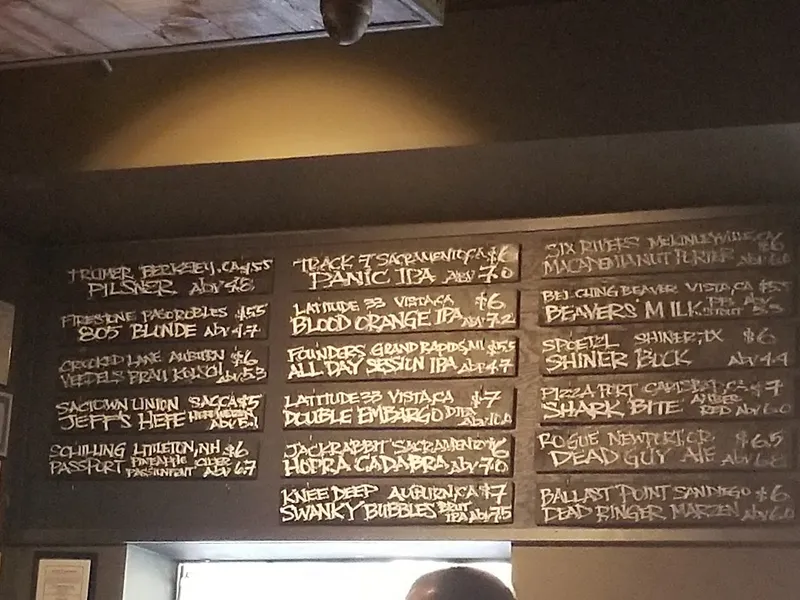 TRUMER BERKELEY, CA $5.5
PILSNER ABV 4.8
FIRESTONE PASO ROBLES $5.5
805 BLONDE ABV 4.7
CROOKED LANE AUBURN $6
VEEDELS BRAU KOLSCH ABV 5.3
SACTOWN UNION SAC CA $5
JEFF'S HEFE HEFEWEIZEN ABV 5.1
SCHILLING LITTLETON, NH $6
PASSPORT PINEAPPLE PASSIONFRUIT CIDER ABV 6.7
TRACK 7 SACRAMENTO, CA $6
PANIC IPA ABV 7.0
LATITUDE 33 VISTA, CA $6
BLOOD ORANGE IPA ABV 7.2
FOUNDERS GRAND RAPIDS, MI $5.5
ALL DAY SESSION IPA ABV 4.7
LATITUDE 33 VISTA, CA $7
DOUBLE EMBARGO ABV 10.0
JACKRABBIT SACRAMENTO $6
HOPRA CADABRA ABV 7.0
KNEE DEEP AUBURN, CA $7
SWANKY BUBBLES BRUT IPA ABV 7.5
SIX RIVERS MCKINLEYVILLE, CA $6
MACADEMIA NUT PORTER ABV 6.0
BELCHING BEAVER VISTA, CA $5.5
BEAVERS' MILK STOUT ABV 5.3
SPOETZL SHINER, TX $6
SHINER BOCK ABV 4.4
PIZZA PORT CARLSBAD, CA $7
SHARK BITE AMBER RED ABV 6.0
ROGUE NEWPORT, OR $6.5
DEAD GUY ALE ABV 6.8
BALLAST POINT SAN DIEGO $6
DEAD RINGER MARZEN ABV 6.0